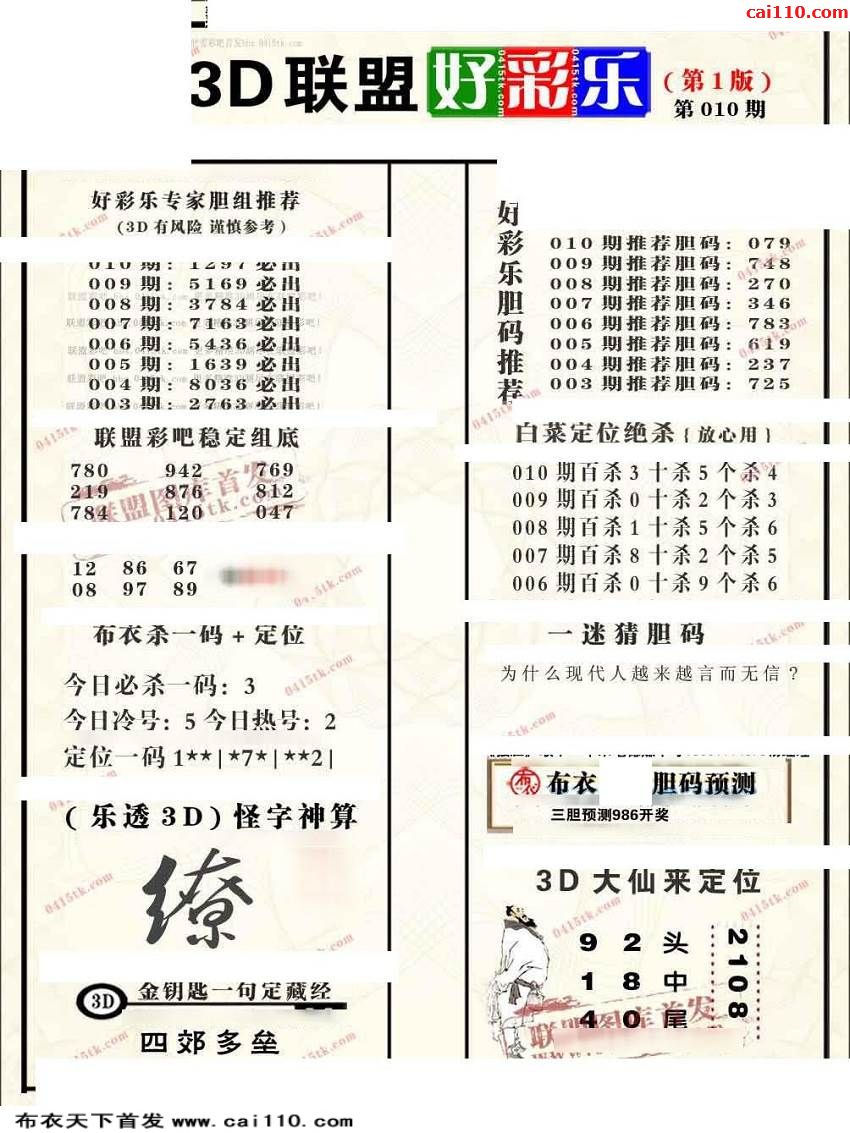 cai110.com
3D联盟好彩乐(第1版)
第 010 期
好彩乐专家胆组推荐
(3D 有风险 谨慎参考)
010 期: 1297 必出
009 期: 5169 必出
008 期: 3784 必出
007 期: 7163 必出
006 期: 5436 必出
005 期: 1639 必出
004 期: 8036 必出
003 期: 2763 必出
联盟彩吧稳定组底
780 942 769
219 876 812
784 120 047
12 86 67
08 97 89
布衣杀一码 + 定位
今日必杀一码: 3
今日冷号: 5 今日热号: 2
定位一码 1**|*7*|**2|
(乐透 3D) 怪字神算
缭
3D 金钥匙一句定藏经
四郊多垒
好彩乐胆码推荐
010 期推荐胆码: 079
009 期推荐胆码: 748
008 期推荐胆码: 270
007 期推荐胆码: 346
006 期推荐胆码: 783
005 期推荐胆码: 619
004 期推荐胆码: 237
003 期推荐胆码: 725
白菜定位绝杀{放心用}
010 期百杀 3 十杀 5 个杀 4
009 期百杀 0 十杀 2 个杀 3
008 期百杀 1 十杀 5 个杀 6
007 期百杀 8 十杀 2 个杀 5
006 期百杀 0 十杀 9 个杀 6
一迷猜胆码
为什么现代人越来越言而无信?
布 布衣 胆码预测
三胆预测986开奖
3D 大仙来定位
9 2 头
1 8 中
4 0 尾
2108
联盟图库首发
0415tk.com
布衣天下首发 www.cai110.com